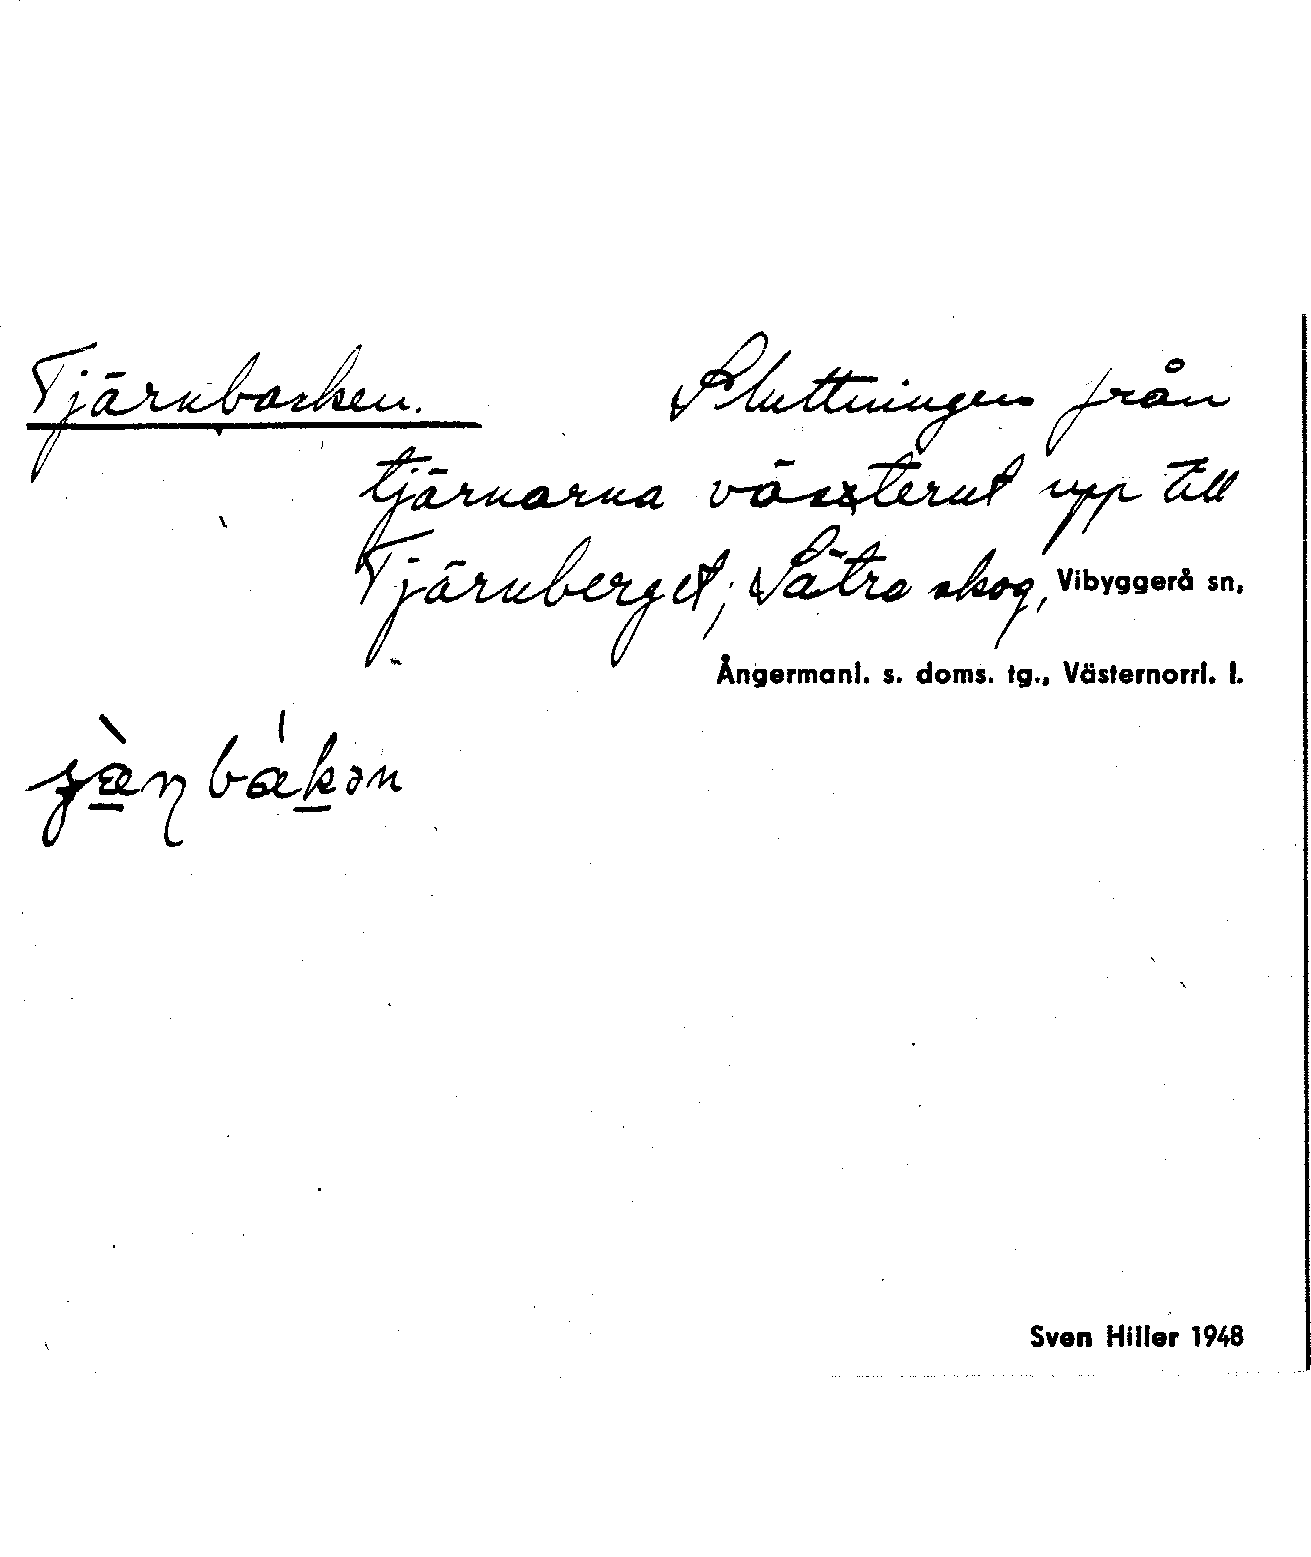 Tjärnbacken. Sluttningen från
tjärnarna västerut upp till
Tjärnberget; Sätra skog, Vibyggerå sn,
Ångermanl. s. doms. tg., Västernorrl. l.
Sven Hiller 1948